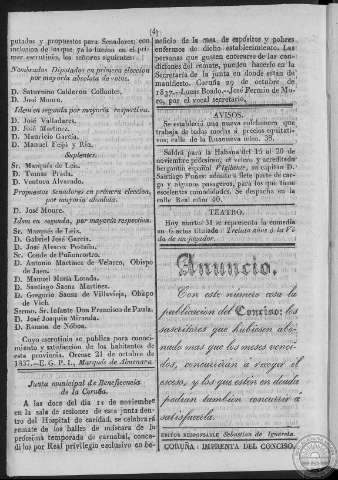 (4)
putados y propuestos para Senadores con
inclusion de los que ya lo fueron en el pri-
mer escrutinio, los señores siguientes:
Nombrados Diputados en primera eleccion
por mayoria absoluta de votos.
D. Saturnino Calderon Collantes.
D. José Moure.
Idem en segunda por mayoría respectiva.
D. José Valladares.
D. José Martinez.
D. Mauricio García.
D. Manuel Feijó y Rio.
Suplentes.
Sr. Marqués de Leis.
D. Tomas Prada.
D. Ventura Alvarado.
Propuestos Senadores en primera eleccion,
por mayoría absoluta.
D. José Moure.
Idem en segunda, por mayoría respectiva.
Sr. Marqués de Leis.
D. Gabriel José García.
D. José Alvarez
Sr. Conde de Puñonrostro.
D. Antonio Martinez de Velasco, Obispo
de Jaen.
D. Manuel María Losada.
D. Santiago Saenz Martinez.
D. Gregorio Saenz de Villavieja, Obispo
de Vich.
Sermo. Sr. Infante Don Francisco de Paula.
D. José Joaquin Miranda.
D. Ramon de Nóboa.
Cuyo escrutinio se publica para conoci-
miento y satisfaccion de los habitantes de
esta provincia. Orense 21 de octubre de
1837.—E. G. P. I., Marqués de Almenara.
Junta municipal de Beneficencia
de la Coruña.
A las doce del dia 11 de noviembre
en la sala de sesiones de esta junta dentro
del Hospital de caridad, se celebrará
remate de los bailes de máscara de la
próxima temporada de carnabal, conce-
didos por Real privilegio esclusivo en be-
neficio de la casa de expósitos y pobres
enfermos de dicho establecimiento. Las
personas que gusten enterarse de las con-
diciones del remate, pueden hacerlo en la
Secretaría de la junta en donde están de
manifiesto. Coruña 29 de octubre de
1837.—Luis Bordo.—José Fermin de Mu-
ro, por el vocal secretario.
AVISOS.
Se establecerá una nueva soldadura que
trabaja de todos modos á precios equitati-
vos; calle de la Franceseria núm. 38.
Saldrá para la Habana del 15 al 20 de
noviembre prócsimo, el velero y acreditado
bergantin español Vigilante, su capitan D.
Santiago Punes: admite a flete parte de car-
ga y algunos pasageros, para los que tiene
excelentes comodidades. Se despacha en la
calle Real núm 40.
TEATRO.
Hoy martes 31 se representa la comedia
en 6 actos titulada Treinta años ó la Vi-
da de un jugador.
Anuncio.
Con este número cesa la
publicacion del Conciso; los
suscritores que hubiesen abo-
nado mas que los meses venci-
dos, concurrirán á recoger el
esceso, y los que estén en deuda
podrán tambien concurrir á
satisfacerla.
EDITOR RESPONSABLE Sebastian de Iguereta.
CORUÑA: IMPRENTA DEL CONCISO.